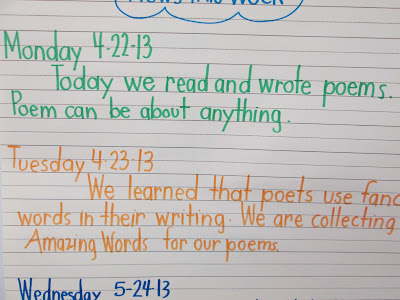 News This Week
Monday 4-22-13
Today we read and wrote poems.
Poem can be about anything.
Tuesday 4-23-13
We learned that poets use fanc
words in their writing. We are collecting
Amazing Words for our poems.
Wednesday 5-24-13